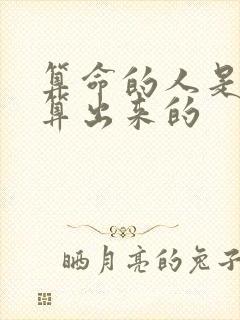 算命的人是
算出来的
晒月亮的兔子